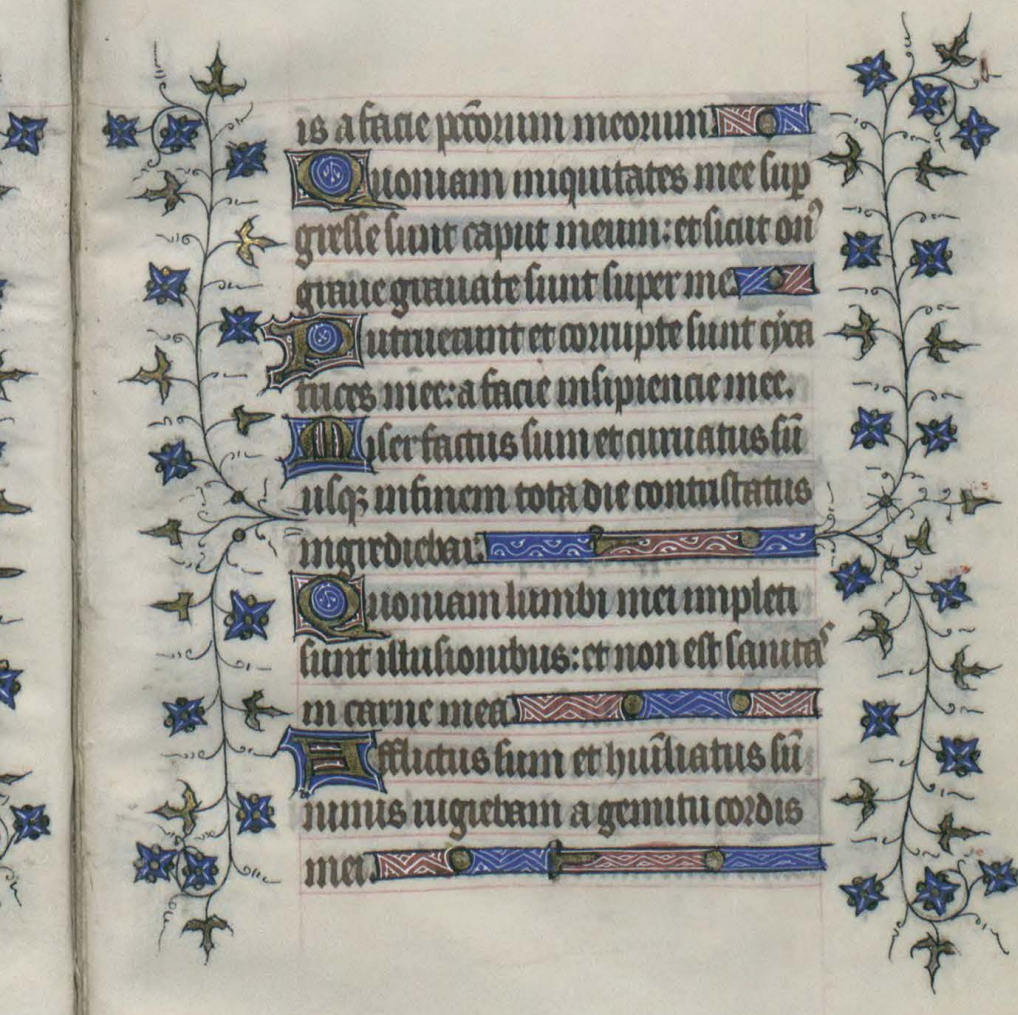 is a facie pccōrum meorum.
Quoniam iniquitates mee sup̄
gresse sunt caput meum: et sicut on᾽
graue grauate sunt super me.
Putruerunt et corrupte sunt cyca
trices mee: a facie insipiencie mee.
Miser factus sum et curuatus sū
usq; in finem tota die contristatus
ingrediebar.
Quoniam lumbi mei impleti
sunt illusionibus: et non est sanitas
in carne mea.
Afflictus sum et hūiliatus sū
nimis rugiebam a gemitu cordis
mei.